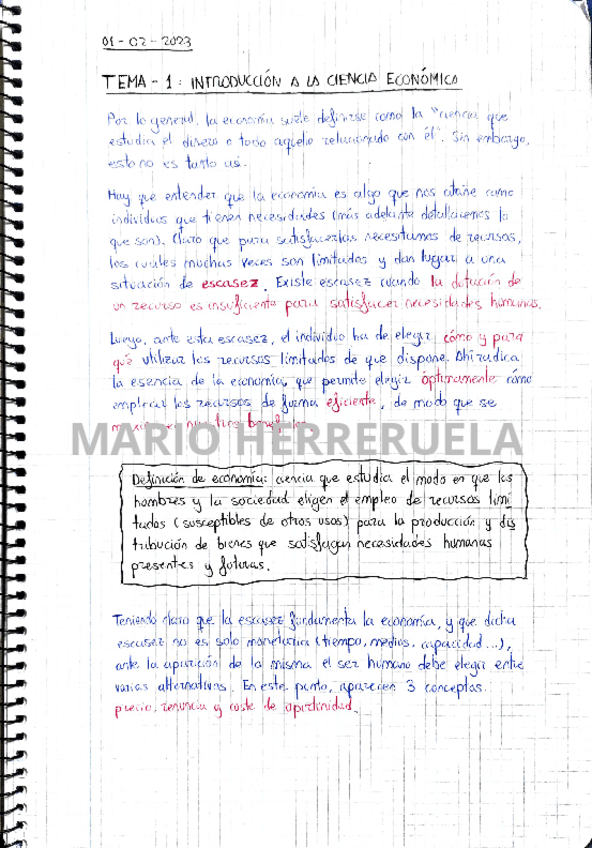 01-02-2023
TEMA-1: INTRODUCCIÓN A LA CIENCIA ECONÓMICA
Por lo general, la economía suele definirse como la "ciencia que
estudia el dinero o todo aquello relacionado con él". Sin embargo,
esto no es tanto así.
Hay que entender que la economía es algo que nos atañe como
individuos que tienen necesidades (más adelante detallaremos lo
que son). Claro que para satisfacerlas necesitamos de recursos,
los cuáles muchas veces son limitados y dan lugar a una
situación de escasez. Existe escasez cuando la dotación de
un recurso es insuficiente para satisfacer necesidades humanas.
Luego, ante esta escasez, el individuo ha de elegir cómo y para
qué utilizar los recursos limitados de que dispone. Ahí radica
la esencia de la economía, que permite elegir óptimamente cómo
emplear los recursos de forma eficiente, de modo que se
MARIO HERRERUELA
Definición de economía: ciencia que estudia el modo en que los
hombres y la sociedad eligen el empleo de recursos limi
tados (susceptibles de otros usos) para la producción y dis
tribución de bienes que satisfagan necesidades humanas
presentes y futuras.
Teniendo claro que la escasez fundamenta la economía, y que dicha
escasez no es solo monetaria (tiempo, medios, capacidad...),
ante la aparición de la misma el ser humano debe elegir entre
varias alternativas. En este punto, aparecen 3 conceptos:
precio, renuncia y coste de oportunidad.